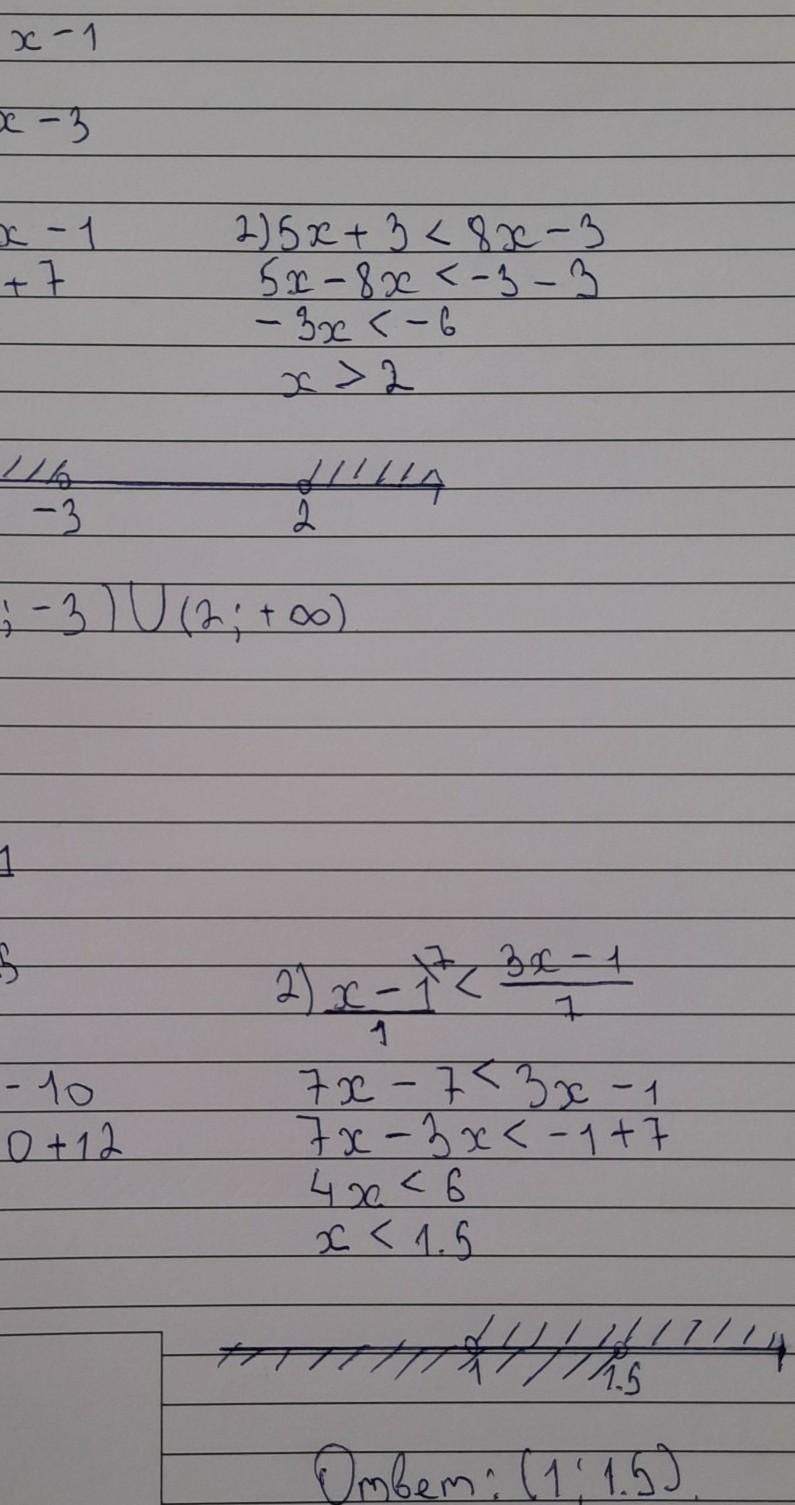 x - 1
x - 3
x - 1
+ 7
2) 5x + 3 < 8x - 3
5x - 8x < -3 - 3
- 3x < - 6
x > 2
-3 2
; -3) ∪ (2; +∞)
1
5
- 10
0 + 12
2) (x - 1)/1 \7 < (3x - 1)/7
7x - 7 < 3x - 1
7x - 3x < -1 + 7
4x < 6
x < 1.5
1 1.5
Ответ: (1; 1.5).